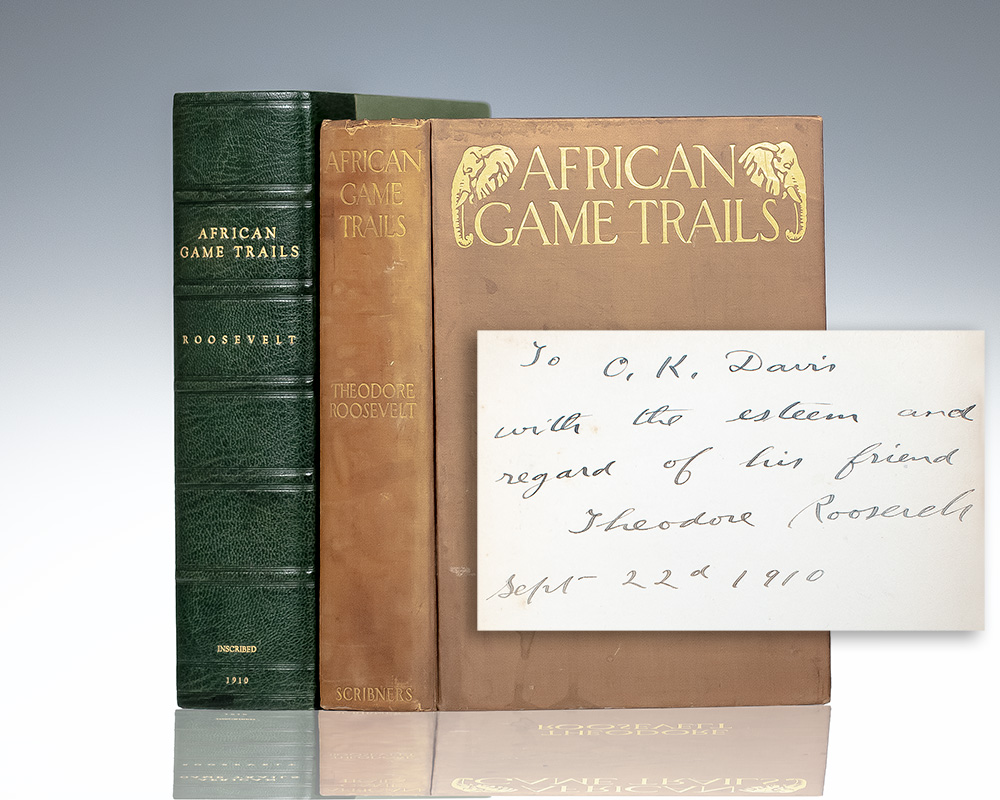 AFRICAN
GAME TRAILS
ROOSEVELT
INSCRIBED
1910
AFRICAN
GAME
TRAILS
THEODORE
ROOSEVELT
SCRIBNERS
AFRICAN
GAME TRAILS
To O. K. Davis
with the esteem and
regard of his friend
Theodore Roosevelt
Sept 22d 1910